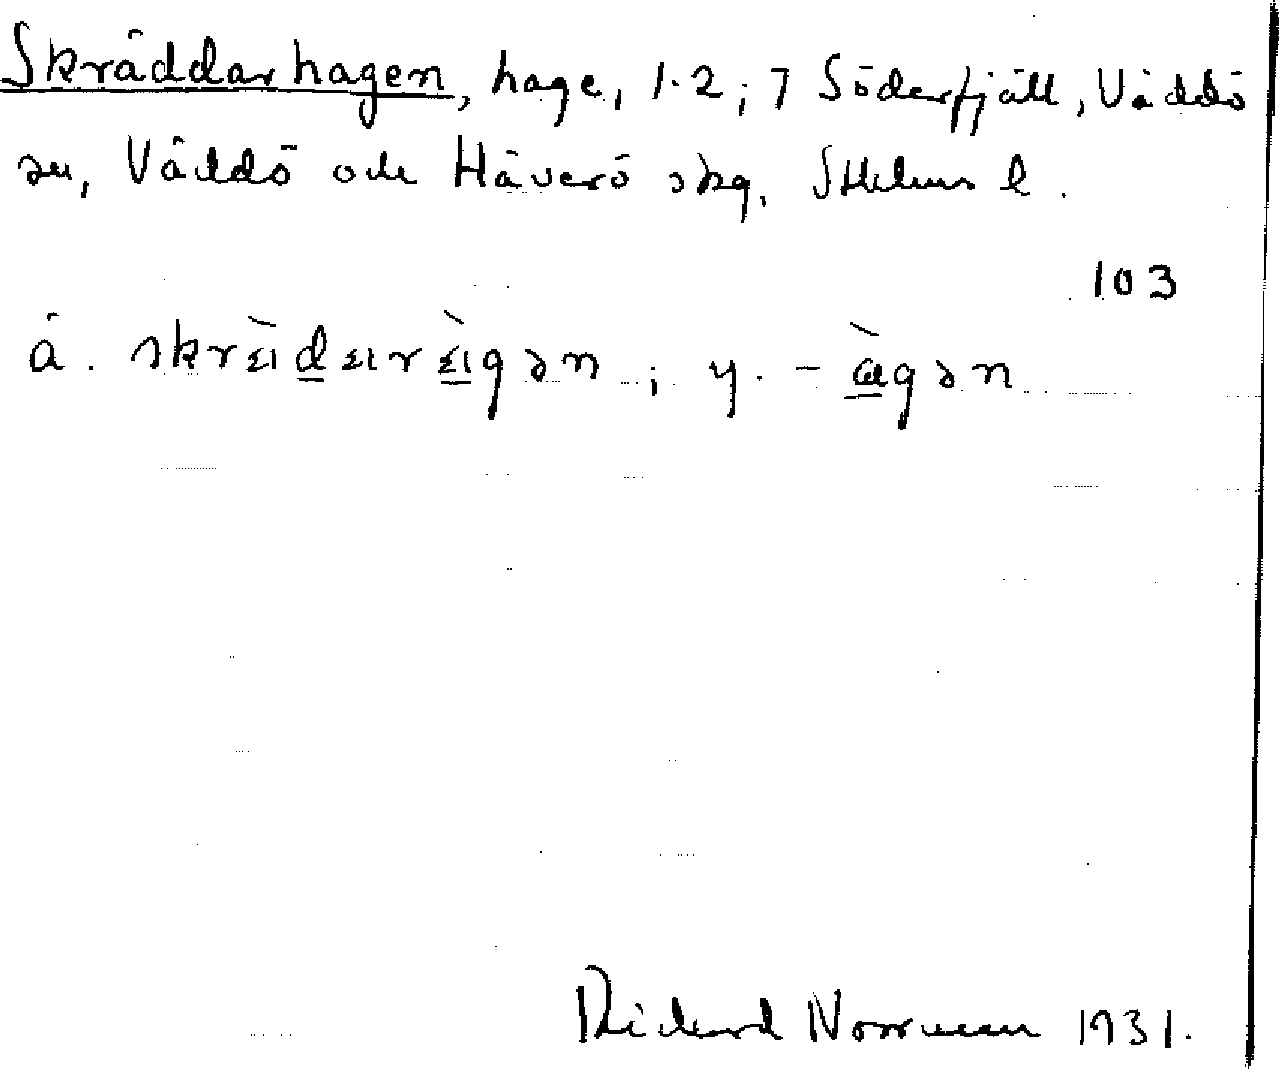 Skräddarhagen, hage, 1.2; 7 Söderfjäll, Väddö
sn, Väddö och Häverö skg, Sthlms l.
103
ä.
; y. -
Richard Norrman 1931.